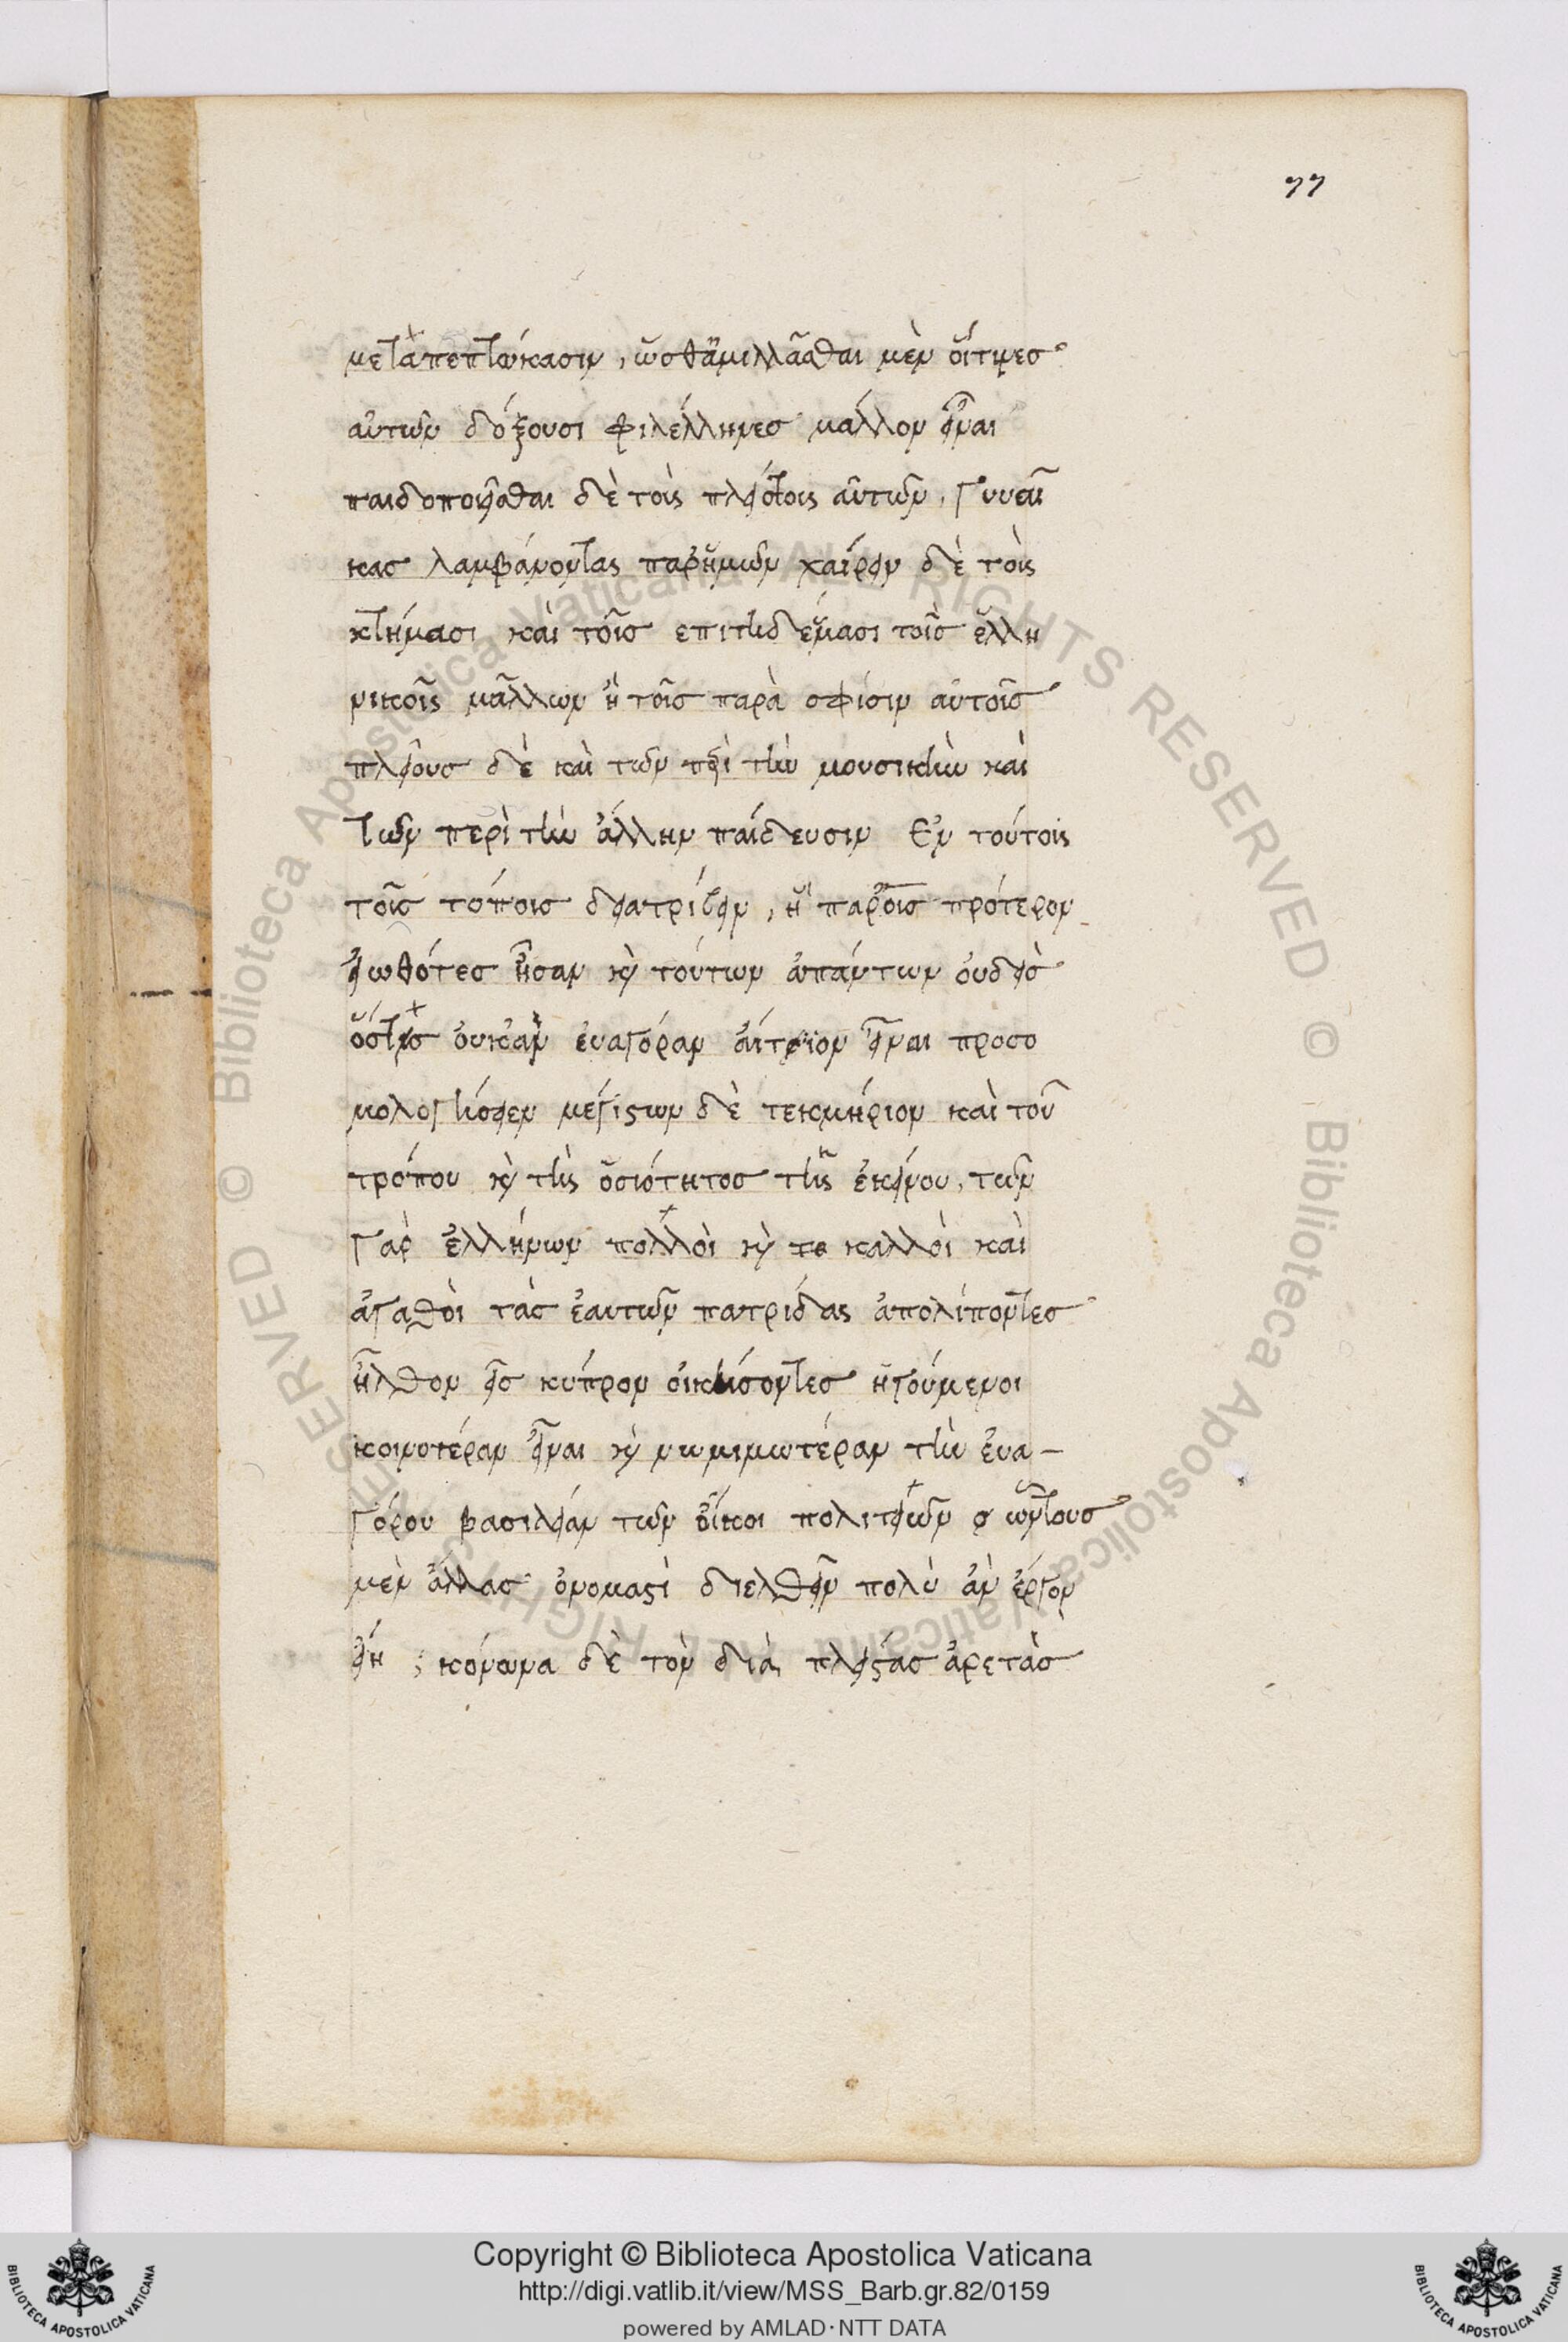 77
μεταπεπτώκασιν, ὥσθ' ἁμιλλᾶσθαι μὲν οἵτινες
αὐτῶν δόξουσι φιλέλληνες μάλλον εἶναι
παιδοποιεῖσθαι δὲ τοὺς πλείστοις αὐτῶν, γυναῖ
κας λαμβάνοντας παρ' ἡμῶν χαίρειν δὲ τοῖς
κτήμασι καὶ τοῖς επιτηδεύμασι τοῖς ἕλλη
νικοῖς μᾶλλων ἢ τοῖς παρὰ σφίσιν αὐτοῖς
πλείους δὲ καὶ τῶν περὶ τὴν μουσικὴν καὶ
τῶν περὶ τὴν ἄλλην παίδευσιν ἐν τούτοις
τοῖς τόποις δειατρίβειν, ἢ παρ' οἷς πρότερον
εἰωθότες ἦσαν καὶ τούτων ἁπάντων οὐδεὶς
ὅστις οὐκ ἂν ἐυαγόραν αἴτιον εἶναι προσο
μολογήσειεν μέγιστων δὲ τεκμήριον καὶ τοῦ
τρόπου καὶ τῆς ὁσιότητος τῆς ἐκείνου, τῶν
γὰρ ἑλλήνων πολλοὶ καὶ καλλοὶ καὶ
ἀγαθοὶ τὰς ἑαυτῶν πατρίδας ἀπολίποντες
ἦλθον εἰς κύπρον οἰκήσοντες ἡγούμενοι
κοινοτέραν εἶναι καὶ νωμιμωτέραν τὴν ἐυα-
γόρου βασιλείαν τῶν οἴκοι πολιτειῶν ὧν τους
μὲν ἄλλας ὀνομαστὶ διελθεῖν πολὺ ἂν ἔργον
εἴη, κόνωνα δὲ τὸν διὰ πλείστας ἀρετὰς
Copyright © Biblioteca Apostolica Vaticana
http://digi.vatlib.it/view/MSS_Barb.gr.82/0159
powered by AMLAD·NTT DATA